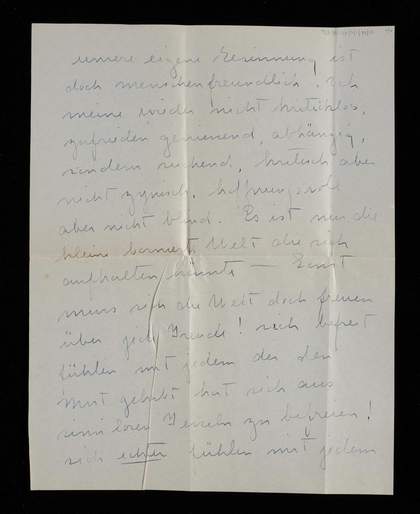 unsere eigene Gesinnung ist
doch menschenfreundlich. Ich
meine weder nicht kritiklos,
zufrieden geniessend, abhängig,
sondern suchend, kritisch aber
nicht zynisch, hoffnungsvoll
aber nicht blind. Es ist nur die
kleine borniert Welt die sich
aufhalten könnte — Sonst
muss sich die Welt doch freuen
über jede Freude! sich befreit
fühlen mit jedem der den
Mut gehabt hat sich aus
sinnlosen Fesseln zu befreien!
sich echter fühlen mit jedem